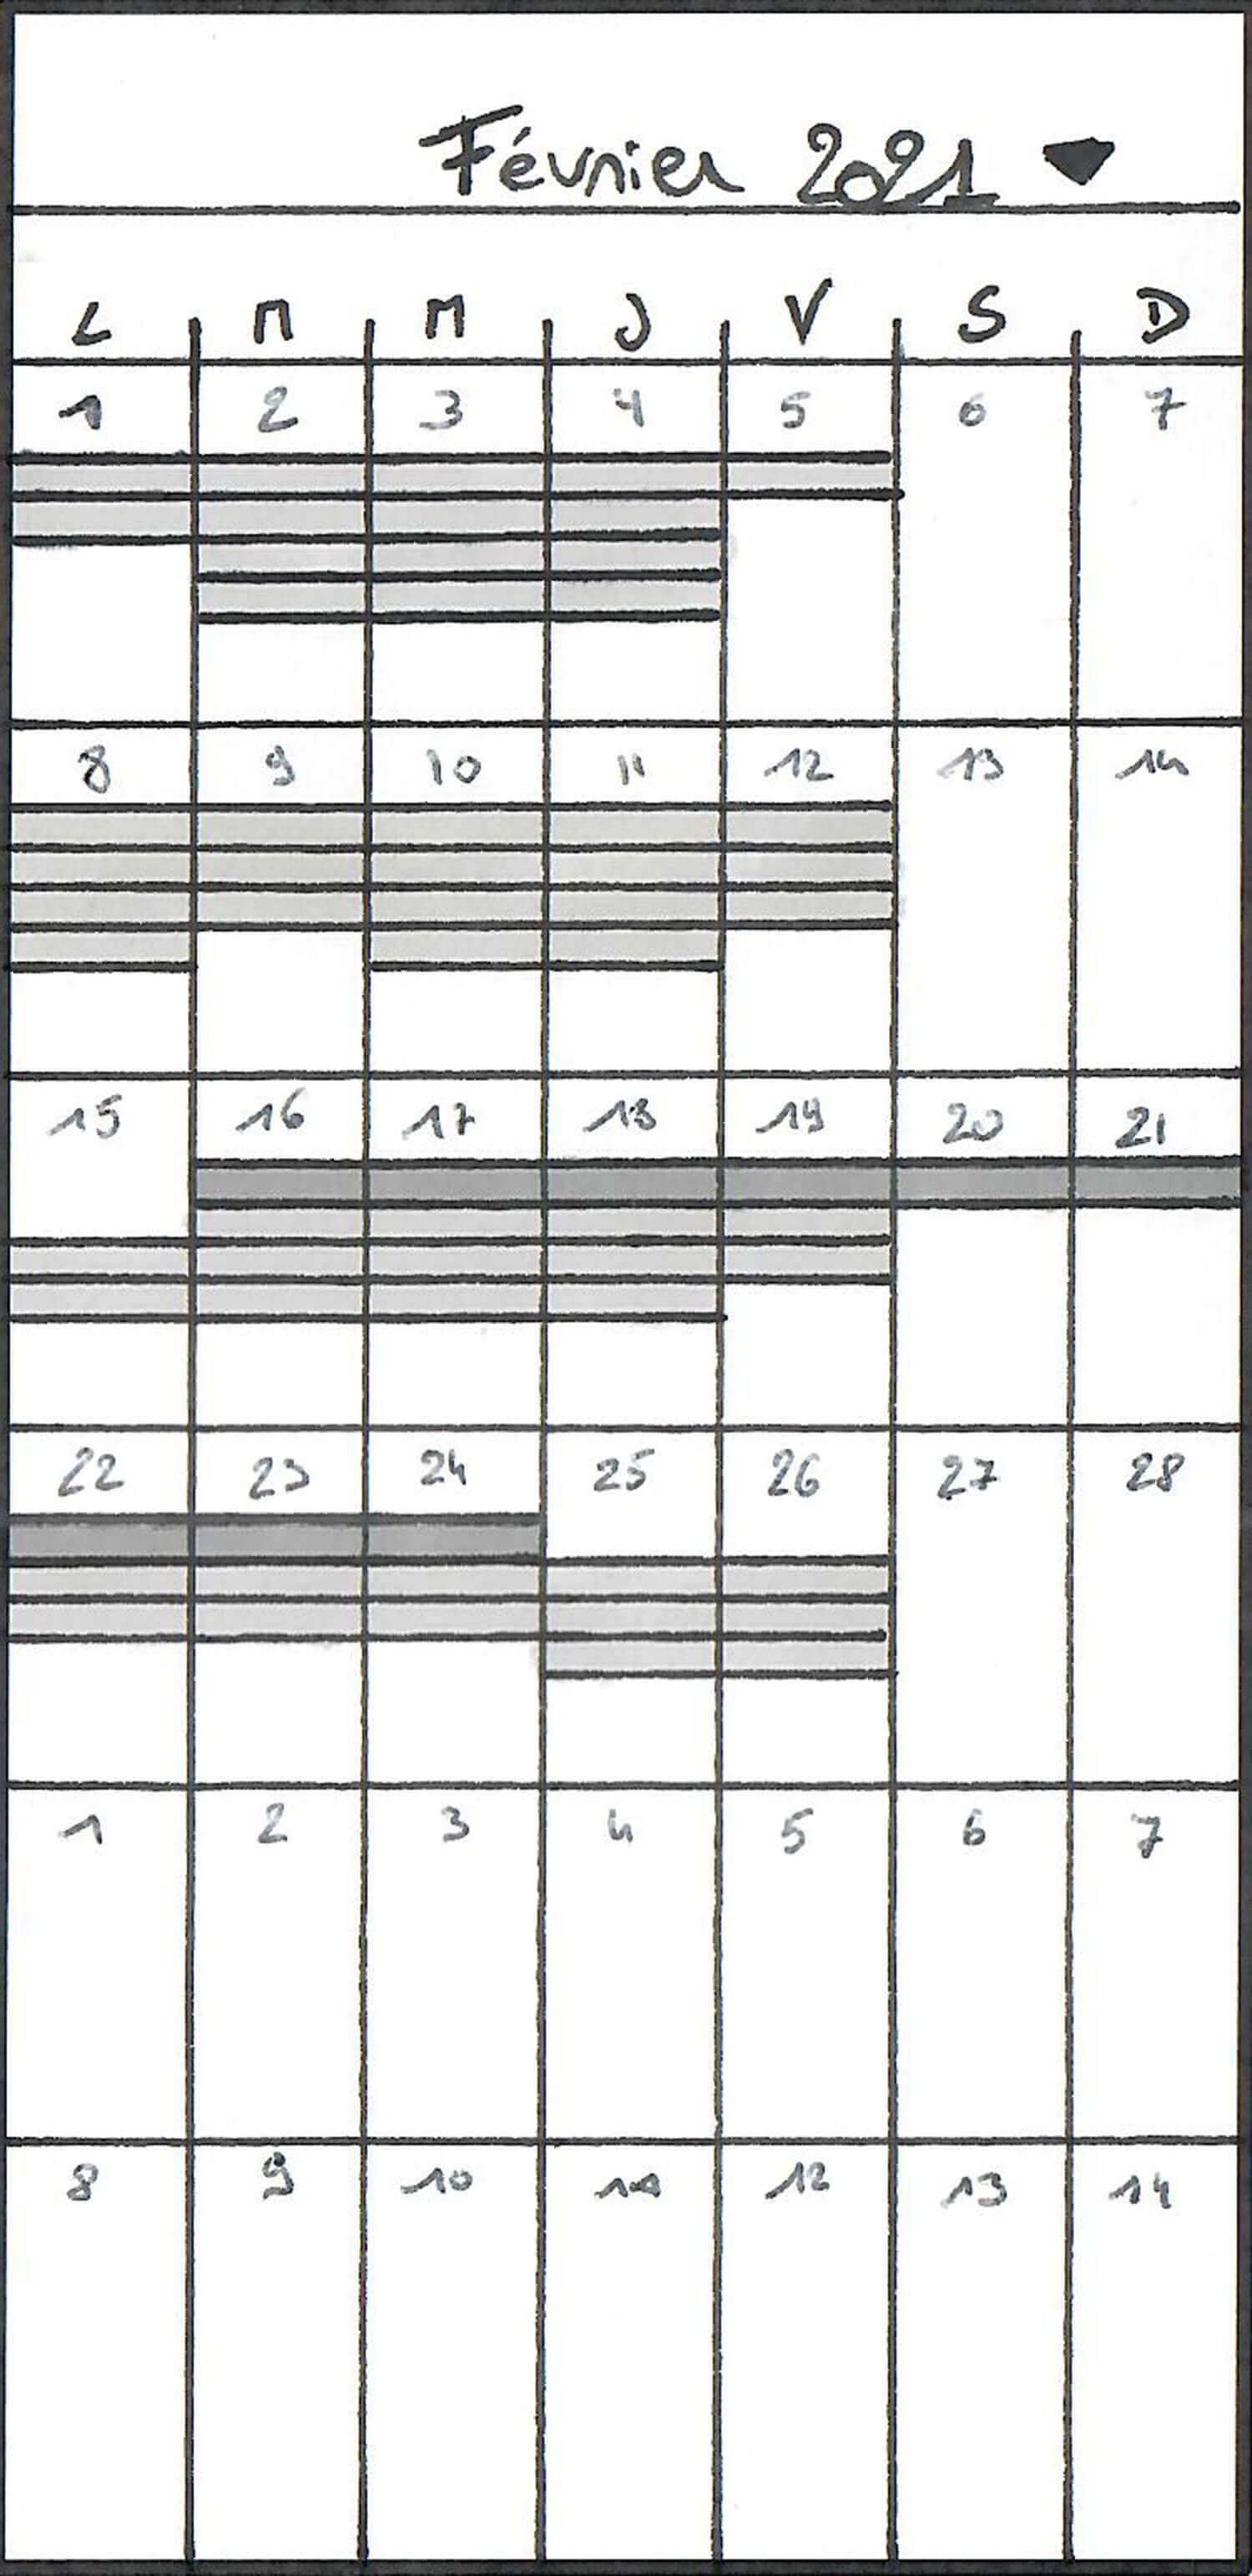 Février 2021
L M M J V S D
1 2 3 4 5 6 7
8 9 10 11 12 13 14
15 16 17 18 19 20 21
22 23 24 25 26 27 28
1 2 3 4 5 6 7
8 9 10 11 12 13 14